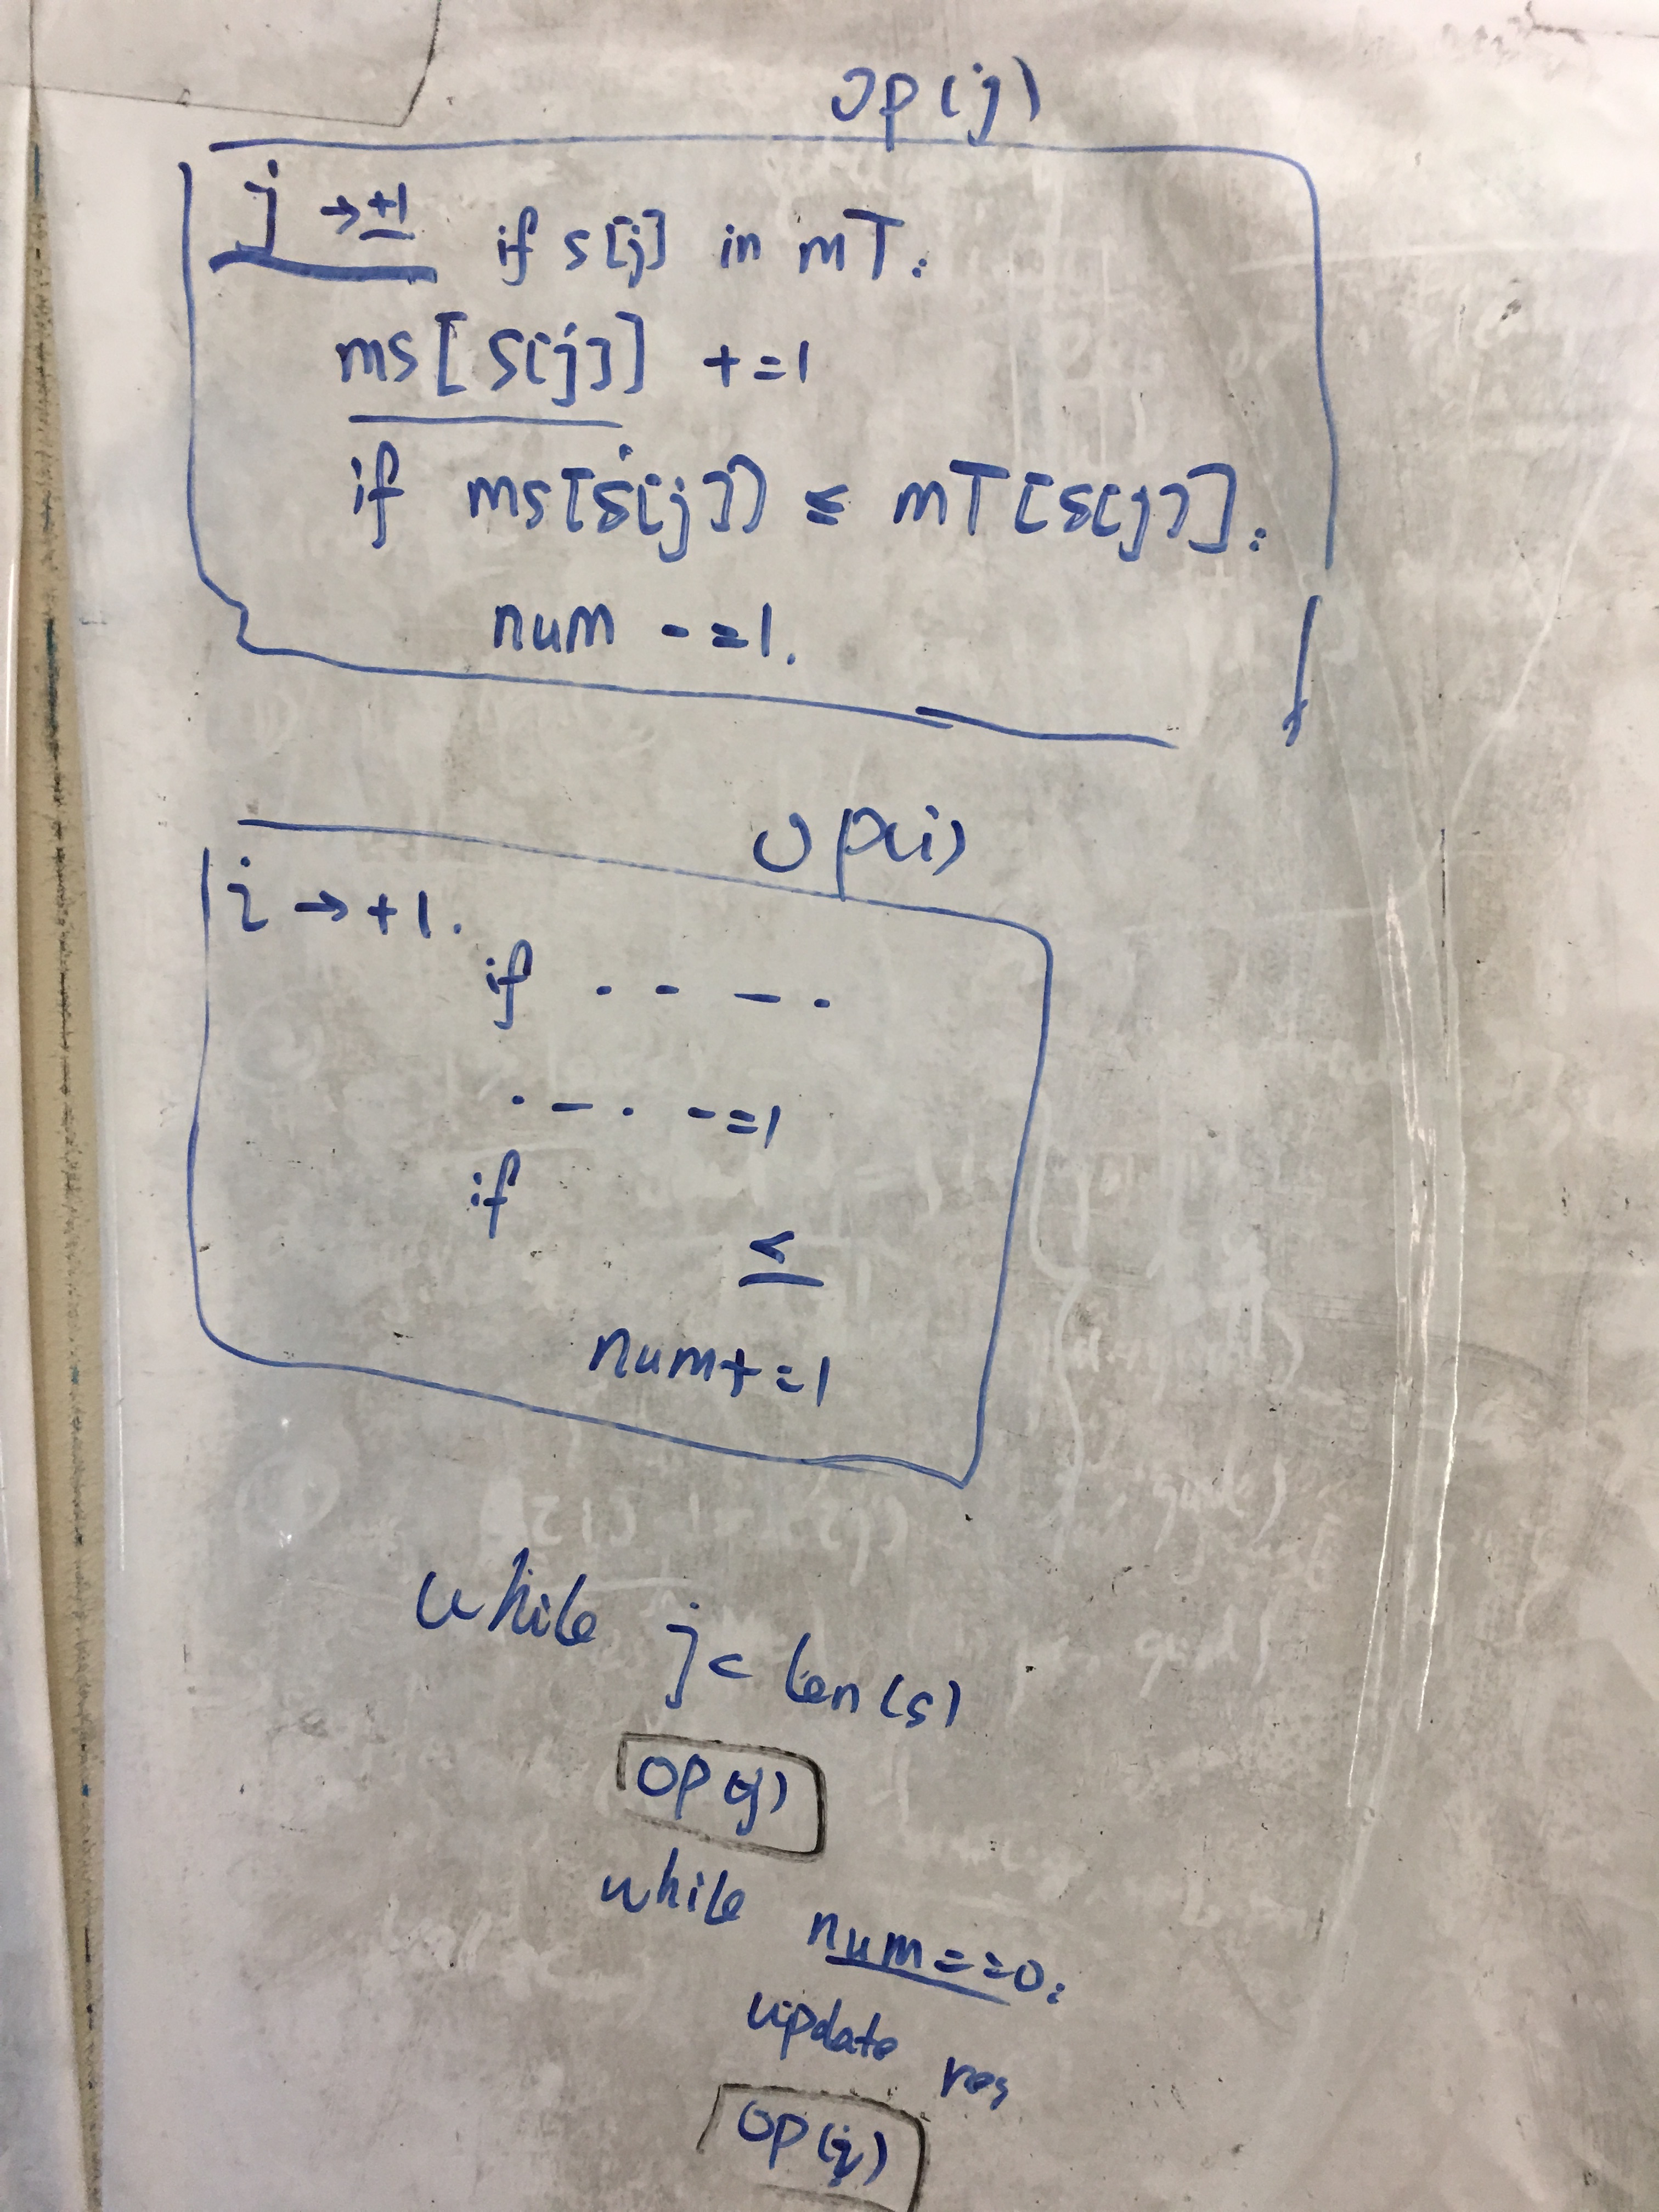 op(j)
j → +1 if s[j] in mT:
ms[s[j]] +=1
if ms[s[j]] ≤ mT[s[j]]:
num -=1.
op(i)
i → +1.
if . - - .
. - . -=1
if
<
num+=1
while j < len(s)
op(j)
while num==0:
update res
op(i)